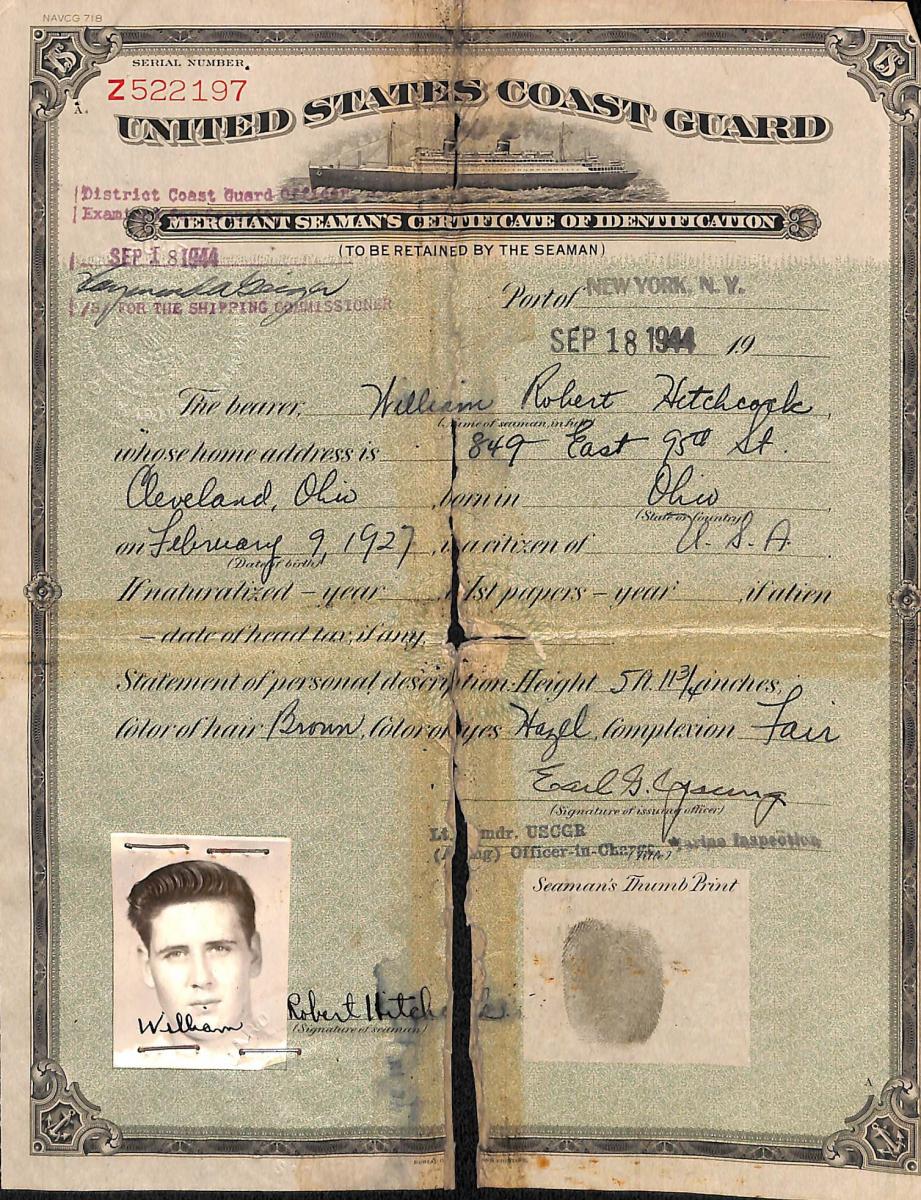 NAVCG 718
SERIAL NUMBER.
Z522197
A.
UNITED STATES COAST GUARD
District Coast Guard Officer
MERCHANT SEAMAN'S CERTIFICATE OF IDENTIFICATION
(TO BE RETAINED BY THE SEAMAN)
SEP 18 1944
/S/ FOR THE SHIPPING COMMISSIONER
Port of NEW YORK, N. Y.
SEP 18 1944 19
The bearer, William Robert Hitchcock,
(Name of seaman, in full)
whose home address is 849 East 95th St.
Cleveland, Ohio, born in Ohio
(State or Country)
on February 9, 1927, is a citizen of U. S. A.
(Date of birth)
If naturalized – year 1st papers – year , if alien
– date of head tax, if any,
Statement of personal description: Height 5 ft. 11 3/4 inches,
Color of hair Brown, Color of eyes Hazel, Complexion Fair
Earl G. Young
(Signature of issuing officer)
Lt. Cmdr, USCGR
(Acting) Officer-in-Charge, Marine Inspection
(Title)
Seaman's Thumb Print
William Robert Hitchcock
(Signature of seaman)
A